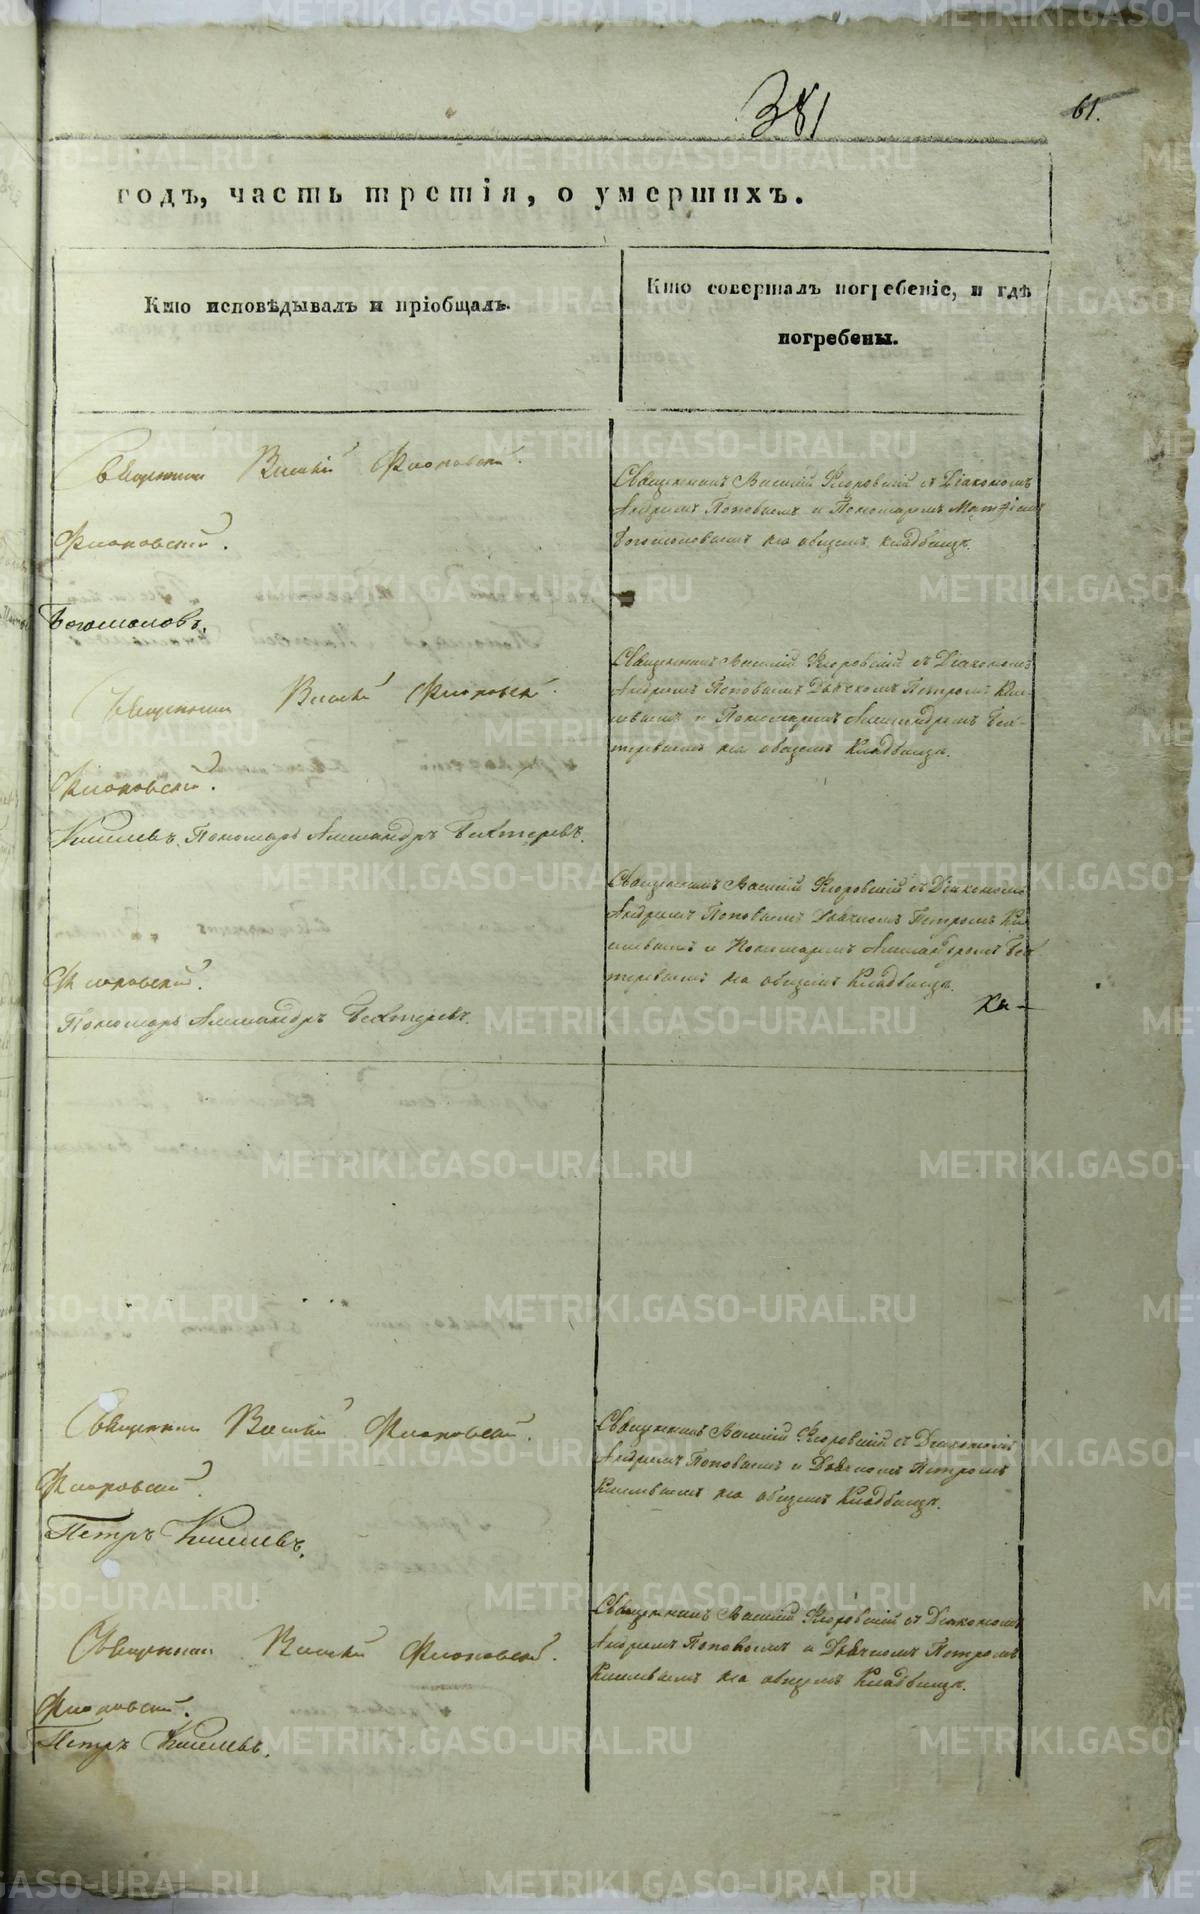 381
61.
годъ, часть третія, о умершихъ.
Кто исповѣдывалъ и пріобщалъ.
Кто совершалъ погребеніе, и гдѣ
погребены.
Священникъ Василій Флоровскій.
Флоровскій.
Богомоловъ.
Священникъ Василій Флоровскій съ Діакономъ
Андреемъ Поповымъ и Пономаремъ Матфіемъ
Богомоловымъ на общемъ кладбищѣ.
Священникъ Василій Флоровскій.
Флоровскій.
Киселевъ, Пономарь Александръ Бехтеревъ.
Священникъ Василій Флоровскій съ Діакономъ
Андреемъ Поповымъ Дьячкомъ Петромъ Кисе-
левымъ и Пономаремъ Александромъ Бех-
теревымъ на общемъ кладбищѣ.
Флоровскій.
Пономарь Александръ Бехтеревъ.
Священникъ Василій Флоровскій съ Діакономъ
Андреемъ Поповымъ Дьячкомъ Петромъ Кисе-
левымъ и Пономаремъ Александромъ Бех-
теревымъ на общемъ кладбищѣ.
Священникъ Василій Флоровскій.
Флоровскій.
Петръ Киселевъ.
Священникъ Василій Флоровскій съ Діакономъ
Андреемъ Поповымъ и Дьячкомъ Петромъ
Киселевымъ на общемъ кладбищѣ.
Священникъ Василій Флоровскій.
Флоровскій.
Петръ Киселевъ.
Священникъ Василій Флоровскій съ Діакономъ
Андреемъ Поповымъ и Дьячкомъ Петромъ
Киселевымъ на общемъ кладбищѣ.
METRIKI.GASO-URAL.RU